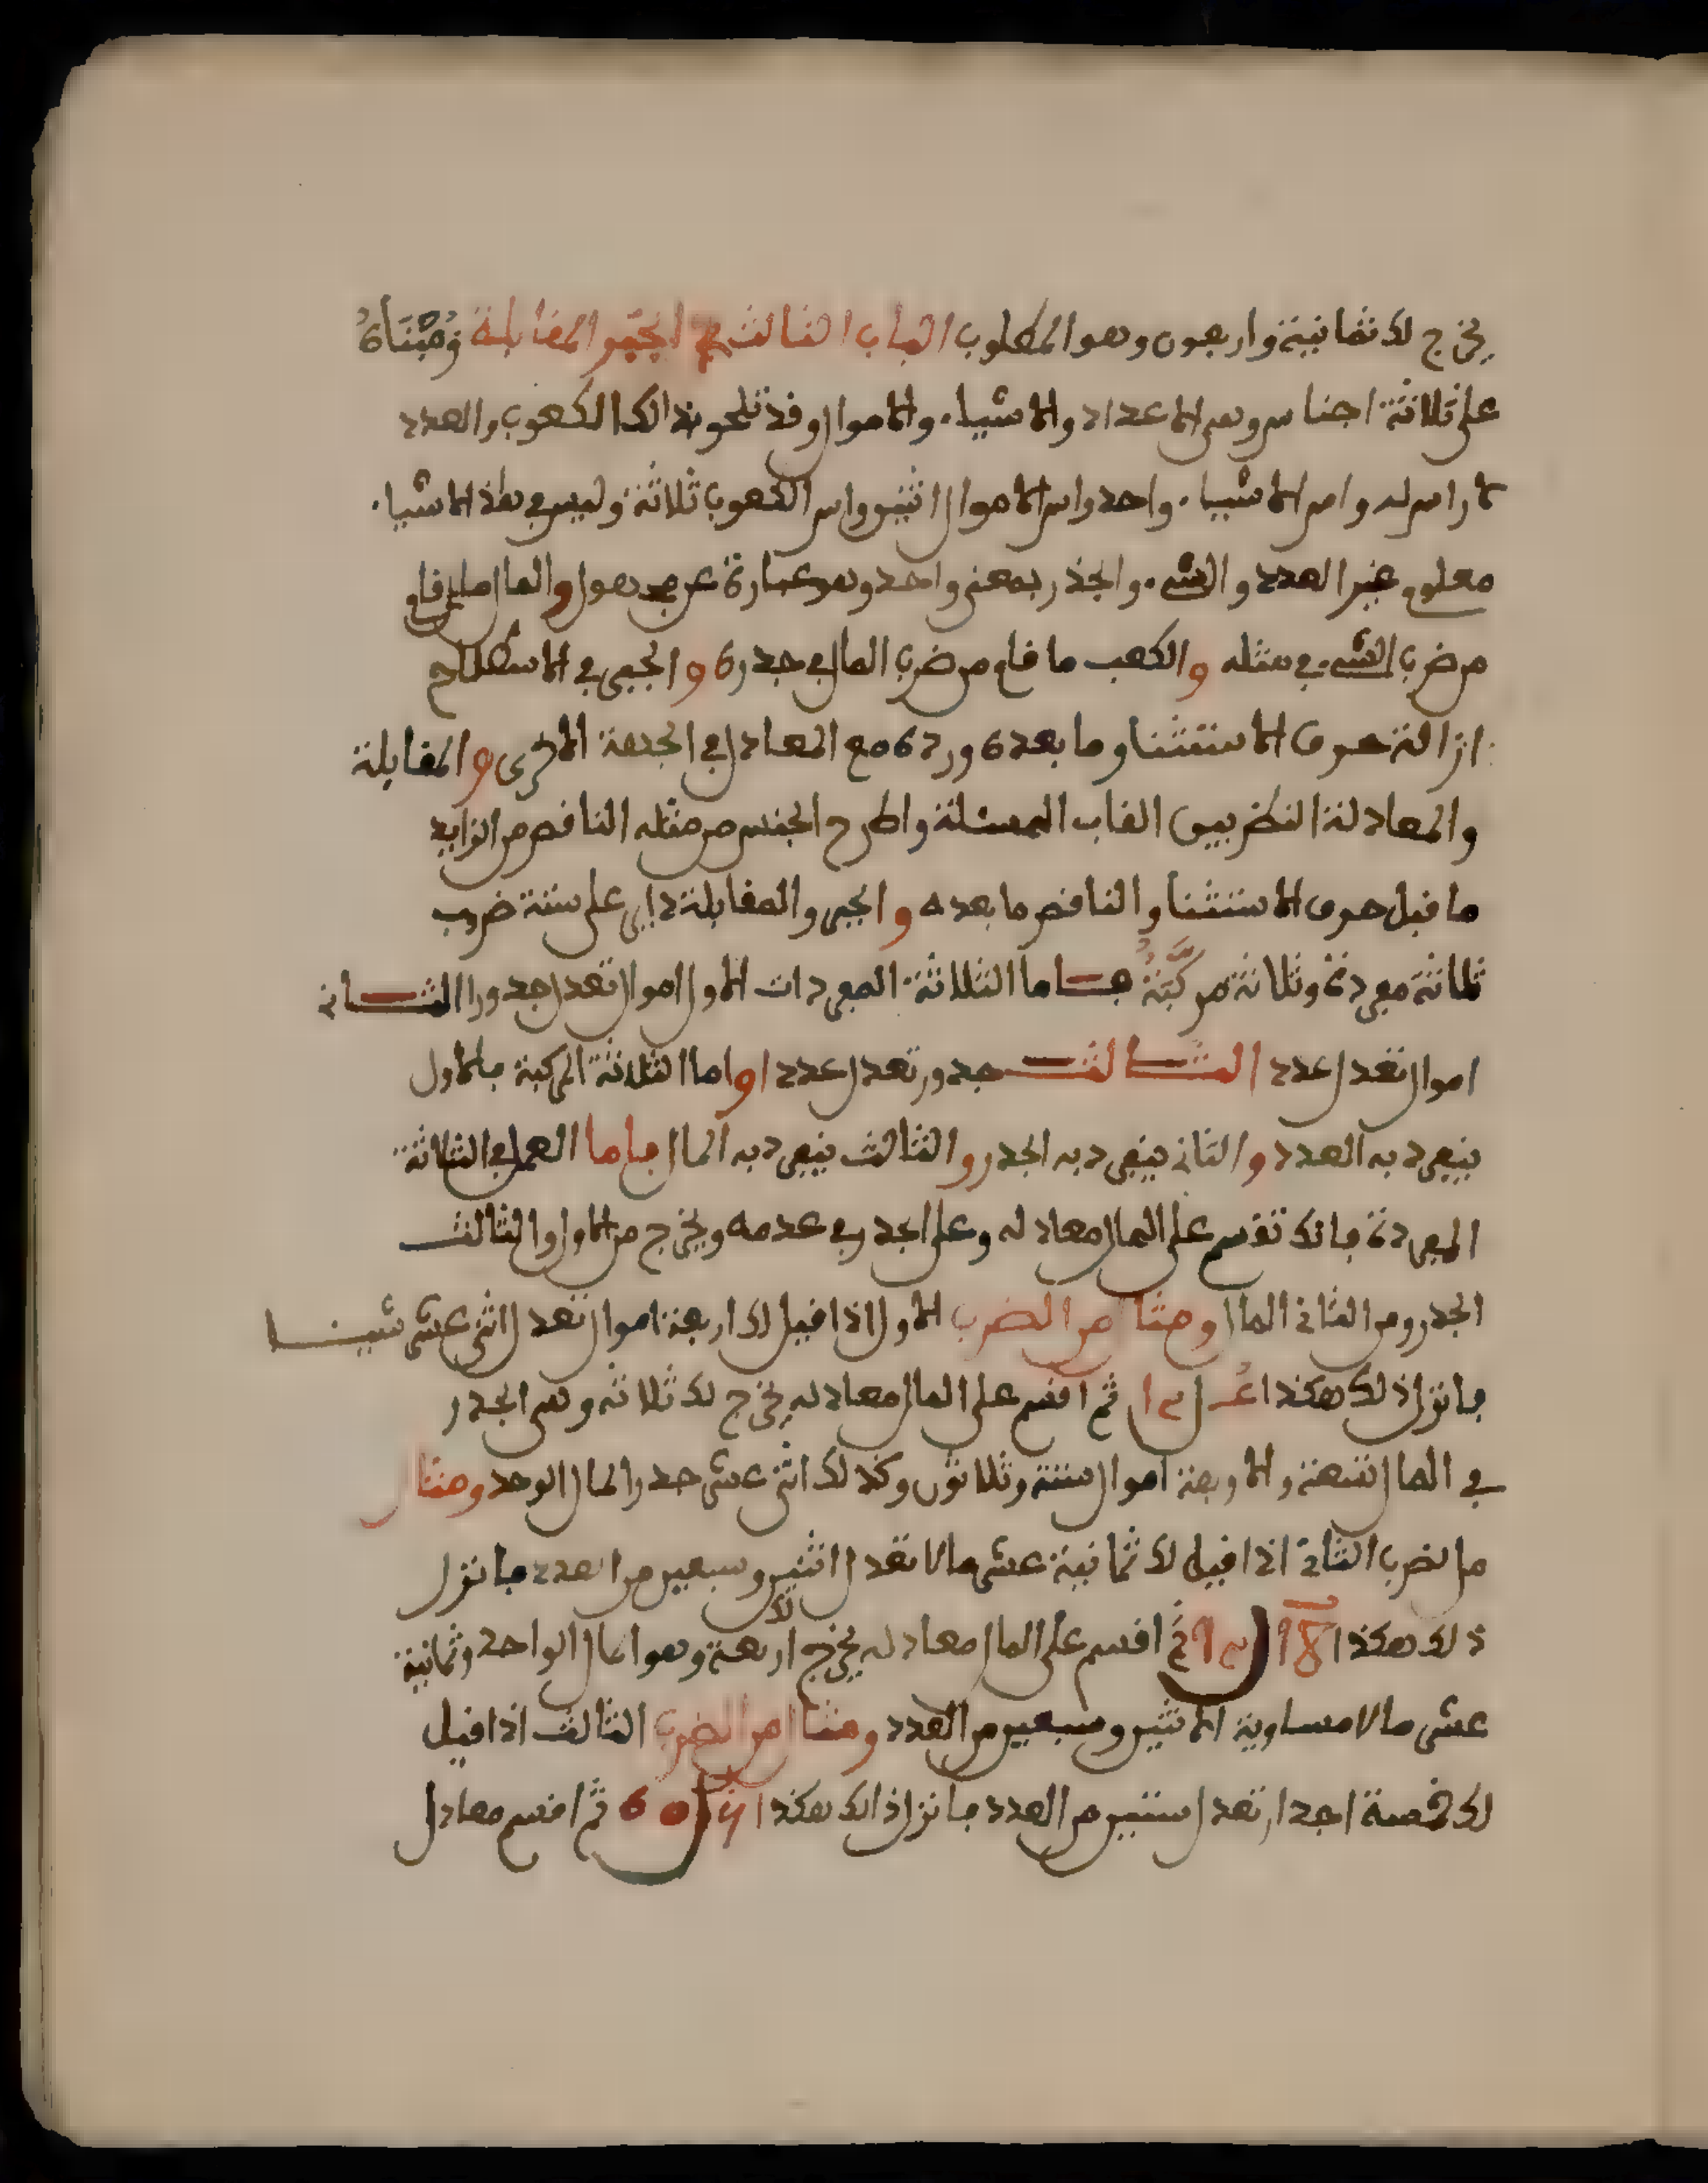 يخرج لك ثمانية واربعون وهو المطلوب الباب الثالث في الجبر والمقابلة ومبناه
على ثلاثة اجناس وهي الاعداد والاشياء والاموال وقد تلحق بذالك الكعوب والعدد
لا راس له واس الاشياء واحد واس الاموال اثنين واس الكعوب ثلاثة وليس في هذه الاشياء
معلوم غير العدد والشيء والجذر بمعنى واحد وهو عبارة عن مجهول والمال ما قام
من ضرب الشيء في مثله والكعب ما قام من ضرب المال في جدره والجبر في الاصطلاح
ازالة حرف الاستثنا وما بعده ورده مع المعادل في الجهة الاخرى والمقابلة
والمعادلة النظر بين القاب المسئلة واطرح الجنس من مثله الناقص من الزايد
ما قبل حرف الاستثنا والناقص ما بعده والجبر والمقابلة داير على ستة ضروب
ثلاثة مفردة وثلاثة مركبة فاما الثلاثة المفردات الاول اموال تعدل جدورا الثاني
اموال تعدل عددا الثالث جدور تعدل عددا واما الثلاثة المركبة فالاول
ينفرد به العدد والثاني ينفرد به الجدر والثالث ينفرد به المال فاما العمل في الثلاثة
المفردة فانك تقسم على المال معادله وعلى الجدر في عدمه ويخرج من الاول والثالث
الجدر ومن الثاني المال ومثال من الضرب الاول اذا قيل لك اربعة اموال تعدل اثني عشر شيئا
فانزل ذلك هكذا ثم اقسم على المال معادله يخرج لك ثلاثه وهي الجدر
في المال تسعة والاربعة اموال ستة وثلاثون وكذلك اثني عشر جدر المال الوحد ومثال
من الضرب الثاني اذا قيل لك ثمانية عشر مالا تعدل اثنين وسبعين من العدد فانزل
ذلك هكذا ثم اقسم على المال معادله يخرج لك اربعة وهو المال الواحد وثمانية
عشر مالا مساوية الاثنين وسبعين من العدد ومثال من الضرب الثالث اذا قيل
لك خمسة اجدار تعدل ستين من العدد فانزل ذالك هكذا ثم اقسم معادل